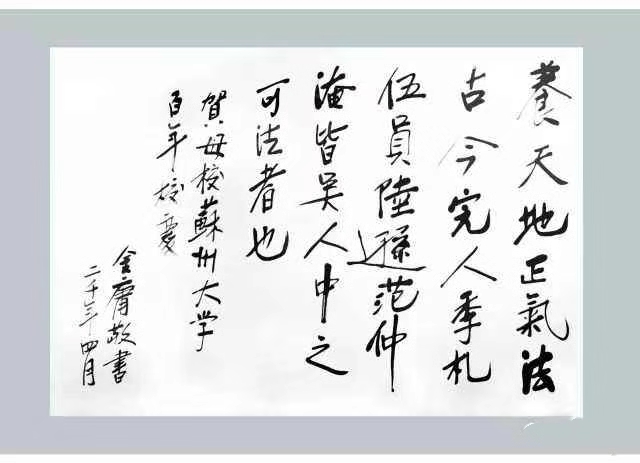 養天地正氣法
古今完人季札
伍員陸遜范仲
淹皆吴人中之
可法者也
賀母校蘇州大学
百年校慶
金庸敬書
二千年四月